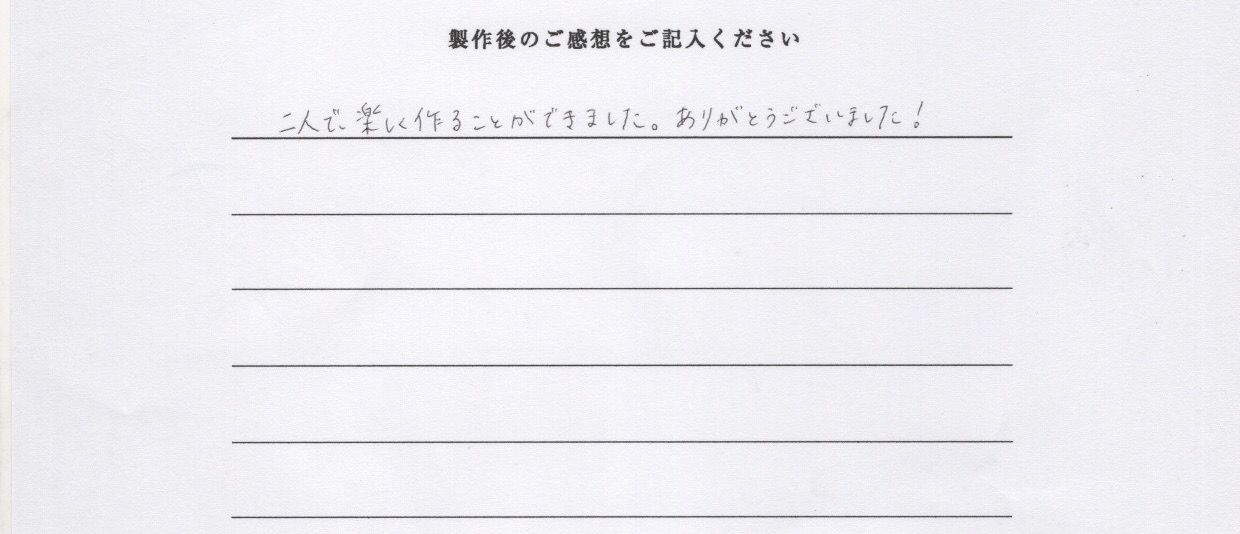 製作後のご感想をご記入ください
二人で、楽しく作ることができました。ありがとうございました!